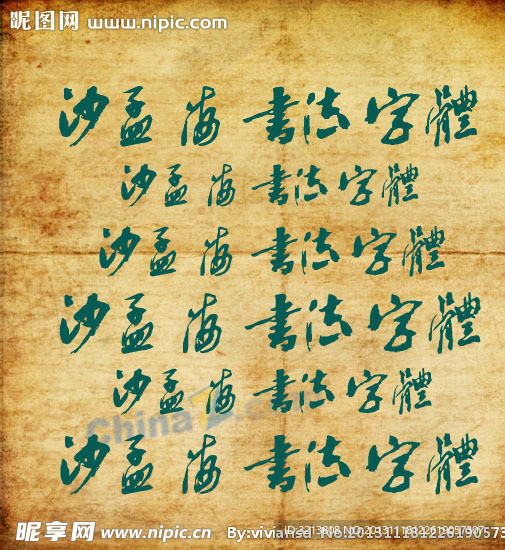 昵图网 www.nipic.com
沙孟海 書法字體
沙孟海 書法字體
沙孟海 書法字體
沙孟海 書法字體
沙孟海 書法字體
沙孟海 書法字體
昵享网 www.nipic.cn